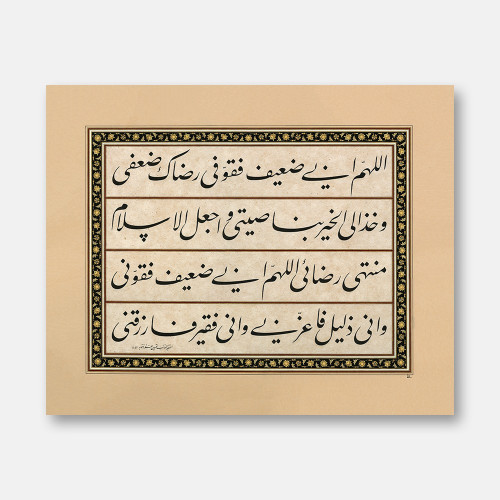 اللهم انی ضعیف فقونی رضاک ضعفی
وخذ الی الخیر بناصیتی واجعل الاسلام
منتهی رضائی اللهم انی ضعیف فقونی
وانی ذلیل فاعزنی وانی فقیر فارزقنی